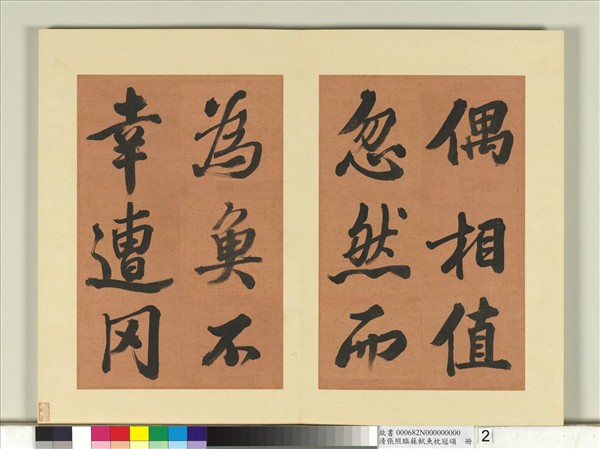 偶相值
忽然而
為奧不
幸遭冈
故書 000682N000000000
清張照臨蘇軾魚枕冠頌 冊
2